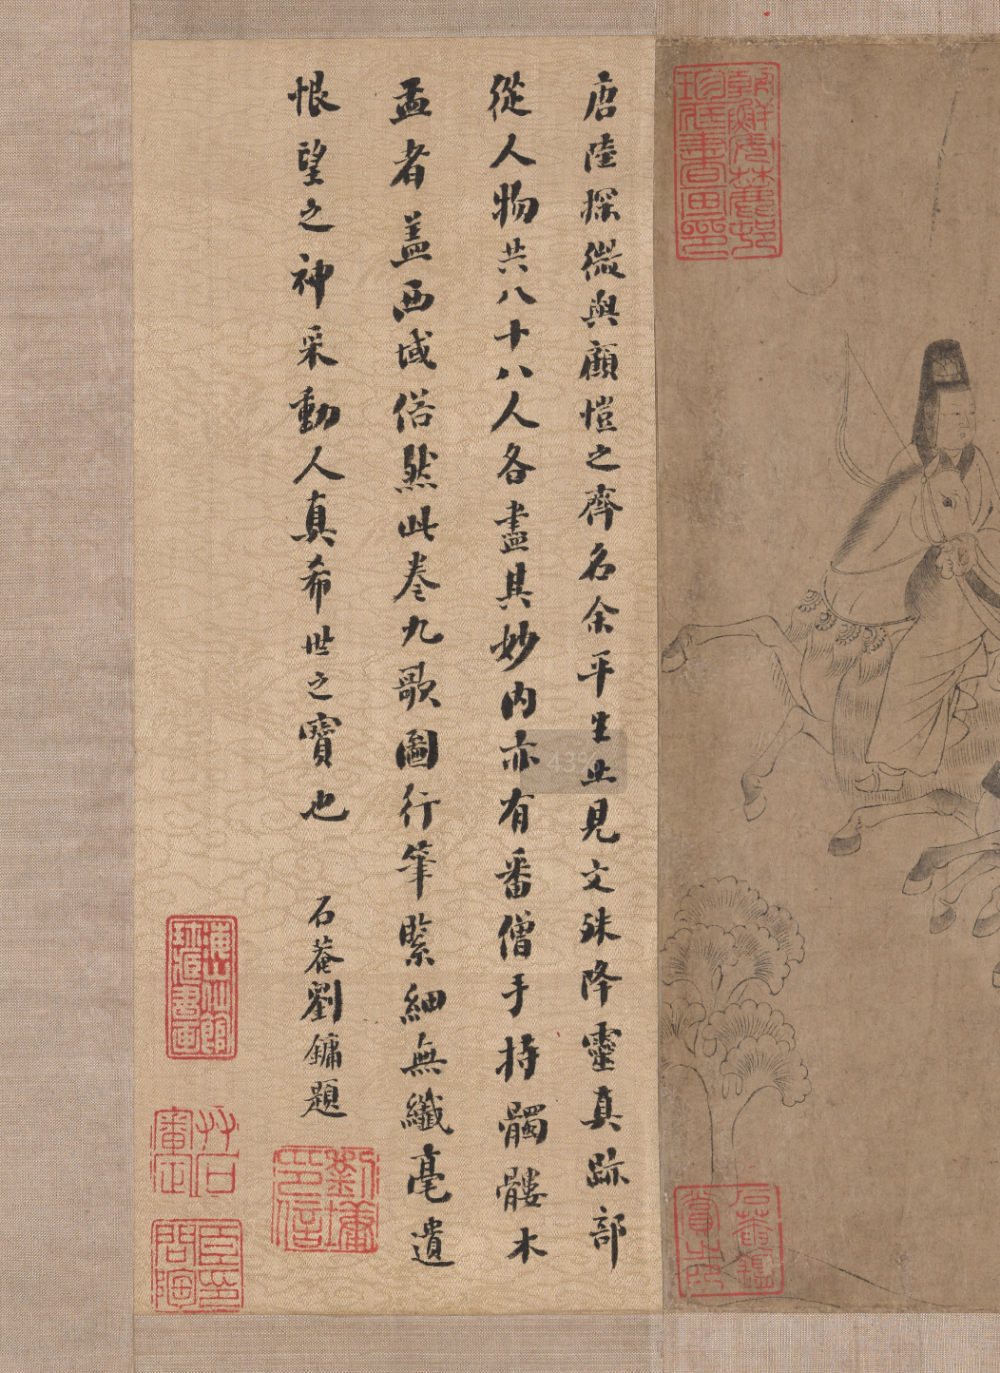 唐陸探微與顧愷之齊名余平生止見文殊降靈真跡部
從人物共八十八人各盡其妙内亦有番僧手持髑髏木
盂者盖西域俗然此卷九歌圖行筆緊細無纖毫遺
恨望之神采動人真希世之寶也
石菴劉鏞題
劉墉印信
海山仙館
珎藏書画
石菴鑑